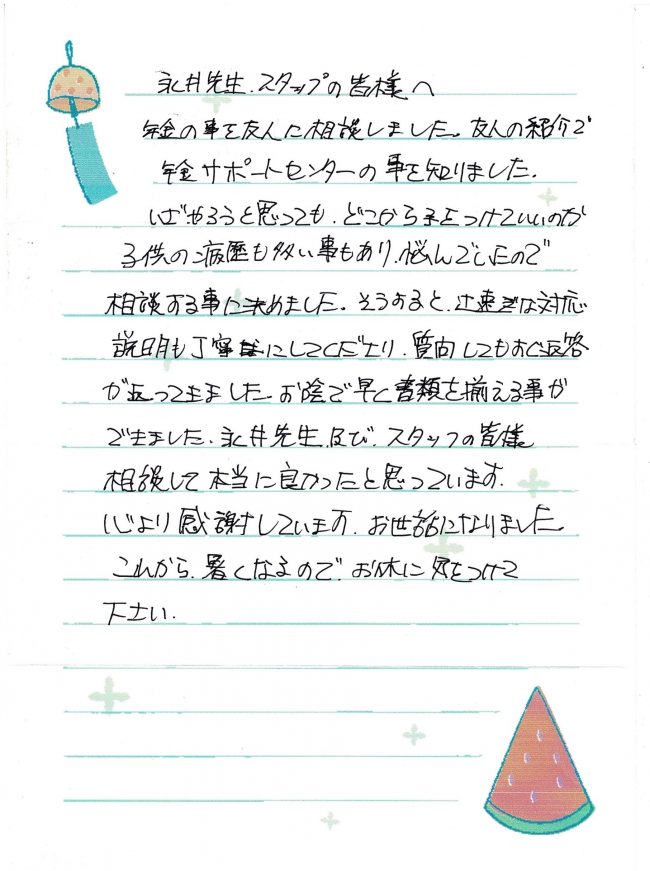 永井先生.スタップの皆様へ
年金の事を友人に相談しました。友人の紹介で
年金サポートセンターの事を知りました.
いざやろうと思っても、どこから手をつけていいのか
子供の病歴も多い事もあり、悩んでいたので
相談する事に決めました。そうすると、迅速な対応
説明も丁寧にしてくださり、質問してもすぐ返答
が返って来ました。お陰で早く書類を揃える事が
できました、永井先生、及び、スタッフの皆様
相談して本当に良かったと思っています.
心より感謝しています、お世話になりました。
これから、暑くなるので、お体に気をつけて
下さい.